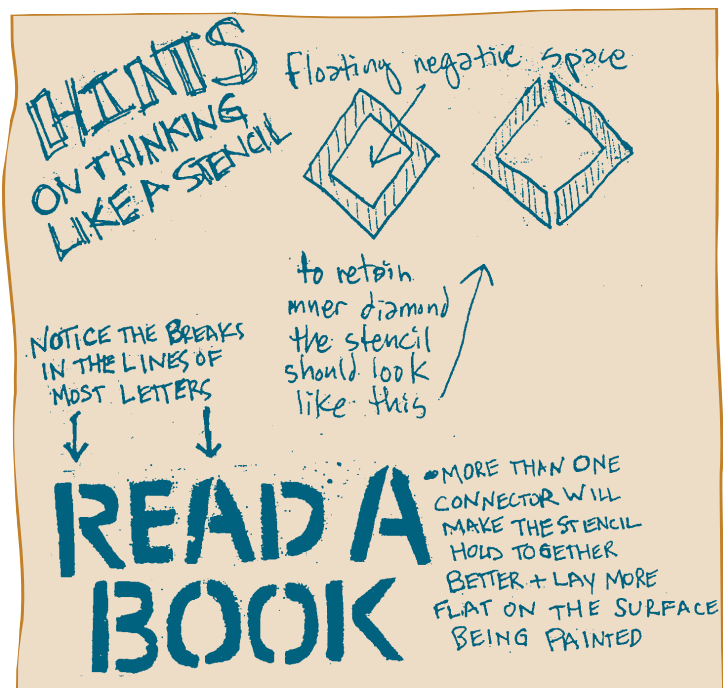 HINTS
ON THINKING
LIKE A STENCIL
floating negative space
to retain
inner diamond
the stencil
should look
like this
NOTICE THE BREAKS
IN THE LINES OF
MOST LETTERS
READ A
BOOK
• MORE THAN ONE
CONNECTOR WILL
MAKE THE STENCIL
HOLD TOGETHER
BETTER + LAY MORE
FLAT ON THE SURFACE
BEING PAINTED